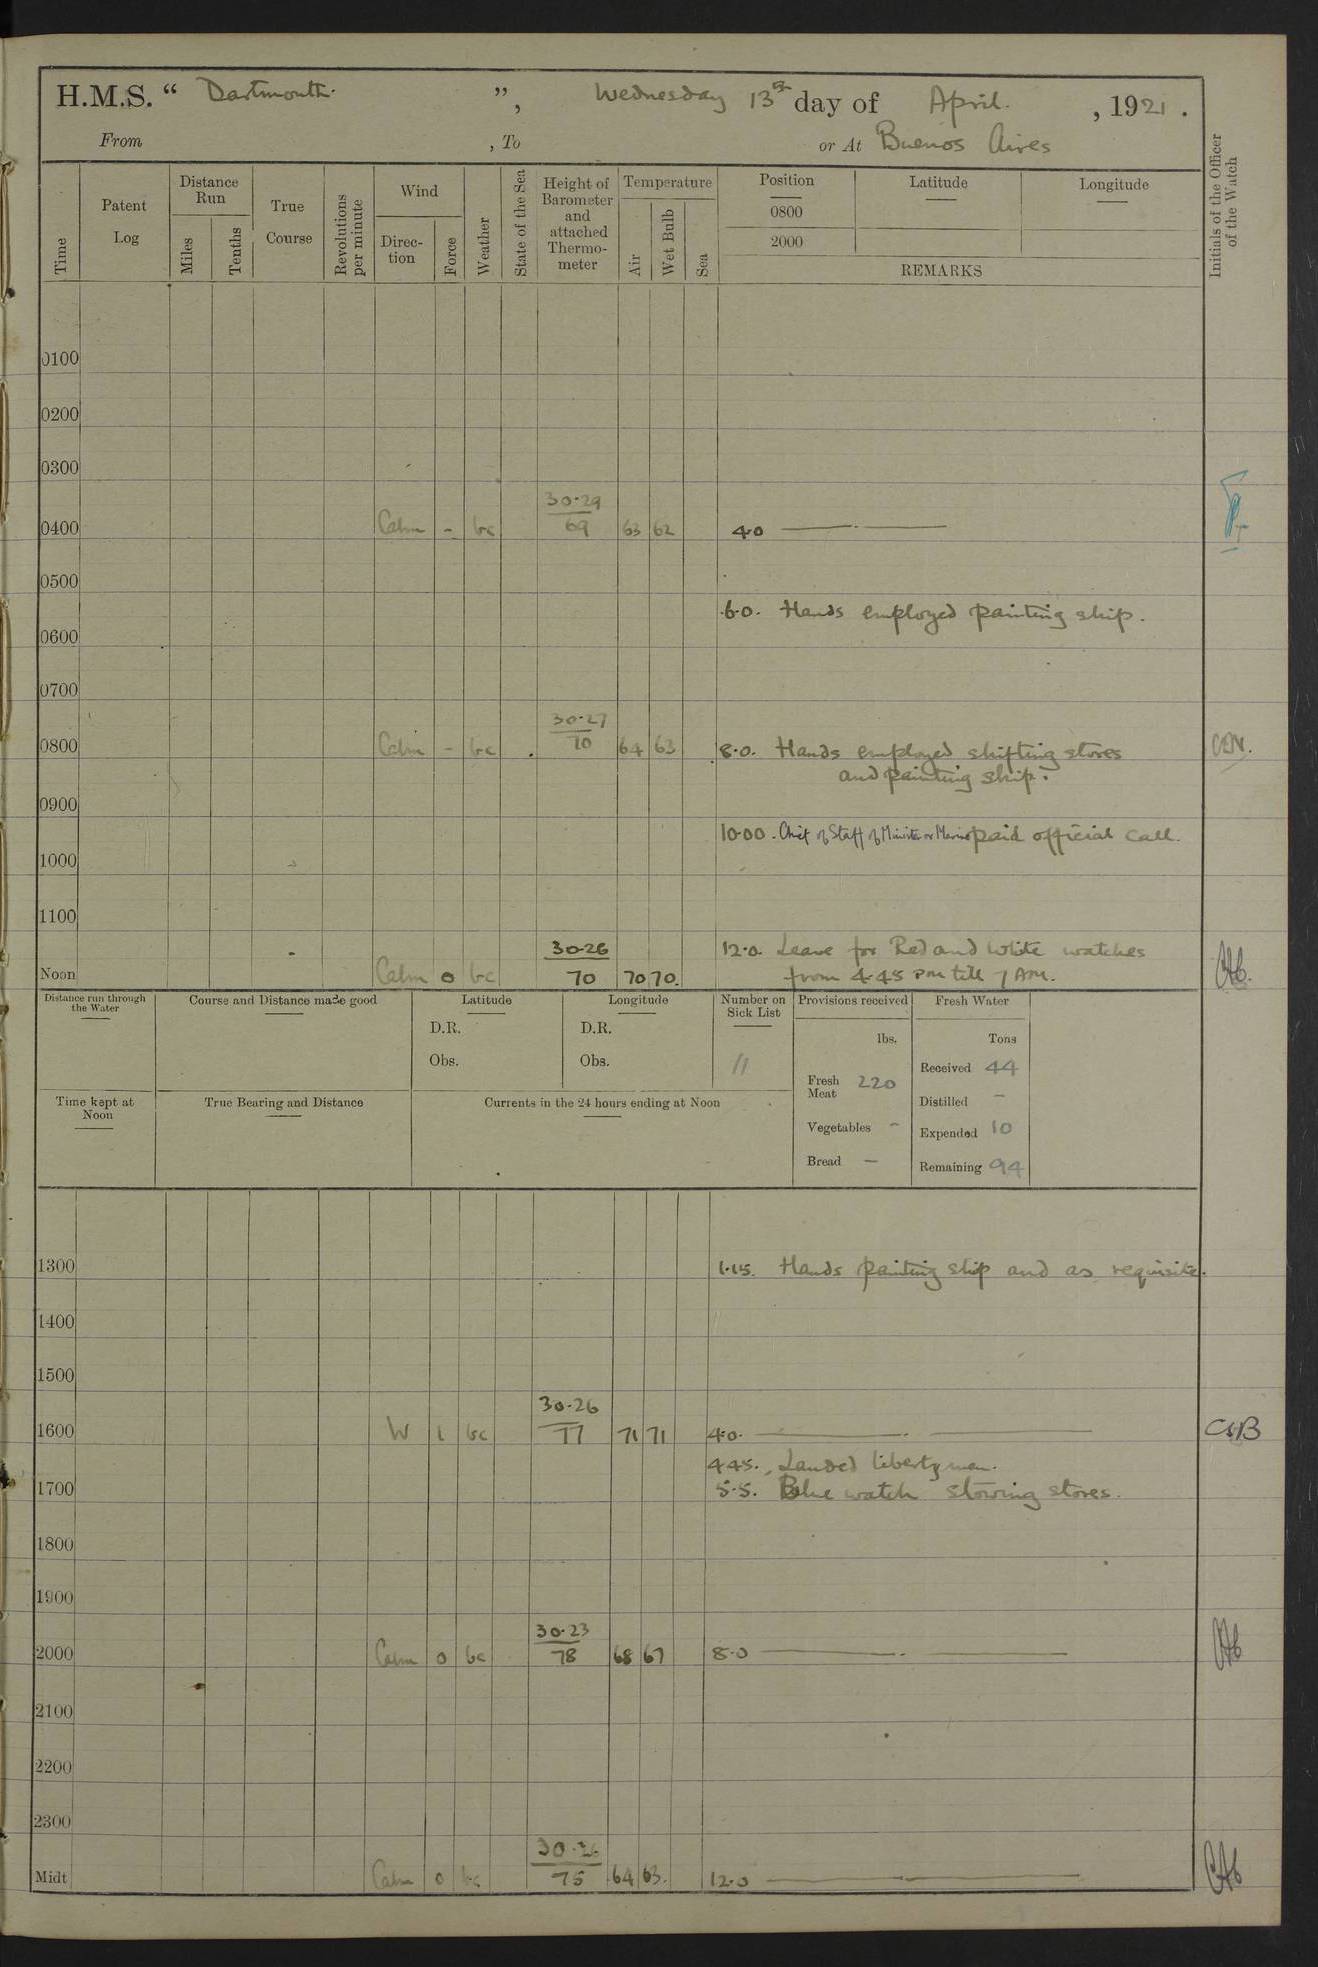 H.M.S. “ Dartmouth. ”, Wednesday 13th day of April. , 1921 .
From , To or At Buenos Aires
Time
Patent Log
Distance Run
Miles
Tenths
True Course
Revolutions per minute
Wind
Direc-tion
Force
Weather
State of the Sea
Height of Barometer and attached Thermo-meter
Temperature
Air
Wet Bulb
Sea
Position
0800
2000
Latitude
Longitude
REMARKS
Initials of the Officer of the Watch
0100
0200
0300
30.29
0400 Calm - bc 69 63 62 4.0 —— . ——
0500
6.0. Hands employed painting ship.
0600
0700
30.27
0800 Calm - bc 70 64 63 8.0. Hands employed shifting stores
and painting ship.
0900
10.00. Chief of Staff of Minister Marine paid official call.
1000
1100
30.26 12.0. Leave for Red and White watches
Noon Calm 0 bc 70 70 70. from 4.45 PM till 7 AM.
Distance run through the Water
Course and Distance made good
Latitude
D.R.
Obs.
Longitude
D.R.
Obs.
Number on Sick List
11
Provisions received
lbs.
Fresh Meat 220
Vegetables -
Bread -
Fresh Water
Tons
Received 44
Distilled -
Expended 10
Remaining 94
Time kept at Noon
True Bearing and Distance
Currents in the 24 hours ending at Noon
1300 1.15. Hands painting ship and as requisite.
1400
1500
30.26
1600 W 1 bc 77 71 71 4.0. —— . —— CAB
4.45. Landed liberty men.
1700 5.5. Blue watch stowing stores.
1800
1900
30.23
2000 Calm 0 bc 78 68 67 8.0 —— . ——
2100
2200
2300
30.26
Midt Calm 0 bc 75 64 63. 12.0 ——